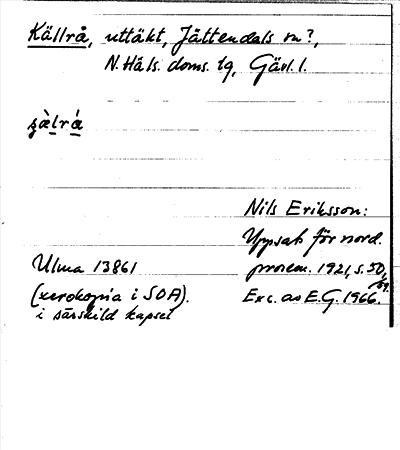 Källrå, uttäkt, Jättendals sn?,
N. Häls. doms. tg, Gävl. l.
sàlrá
Nils Eriksson:
Uppsats för nord.
prosem. 1921, s. 50,
Ulma 13861
(xerokopia i SOA).
i särskild kapsel
Exc. av E.G. 1966.